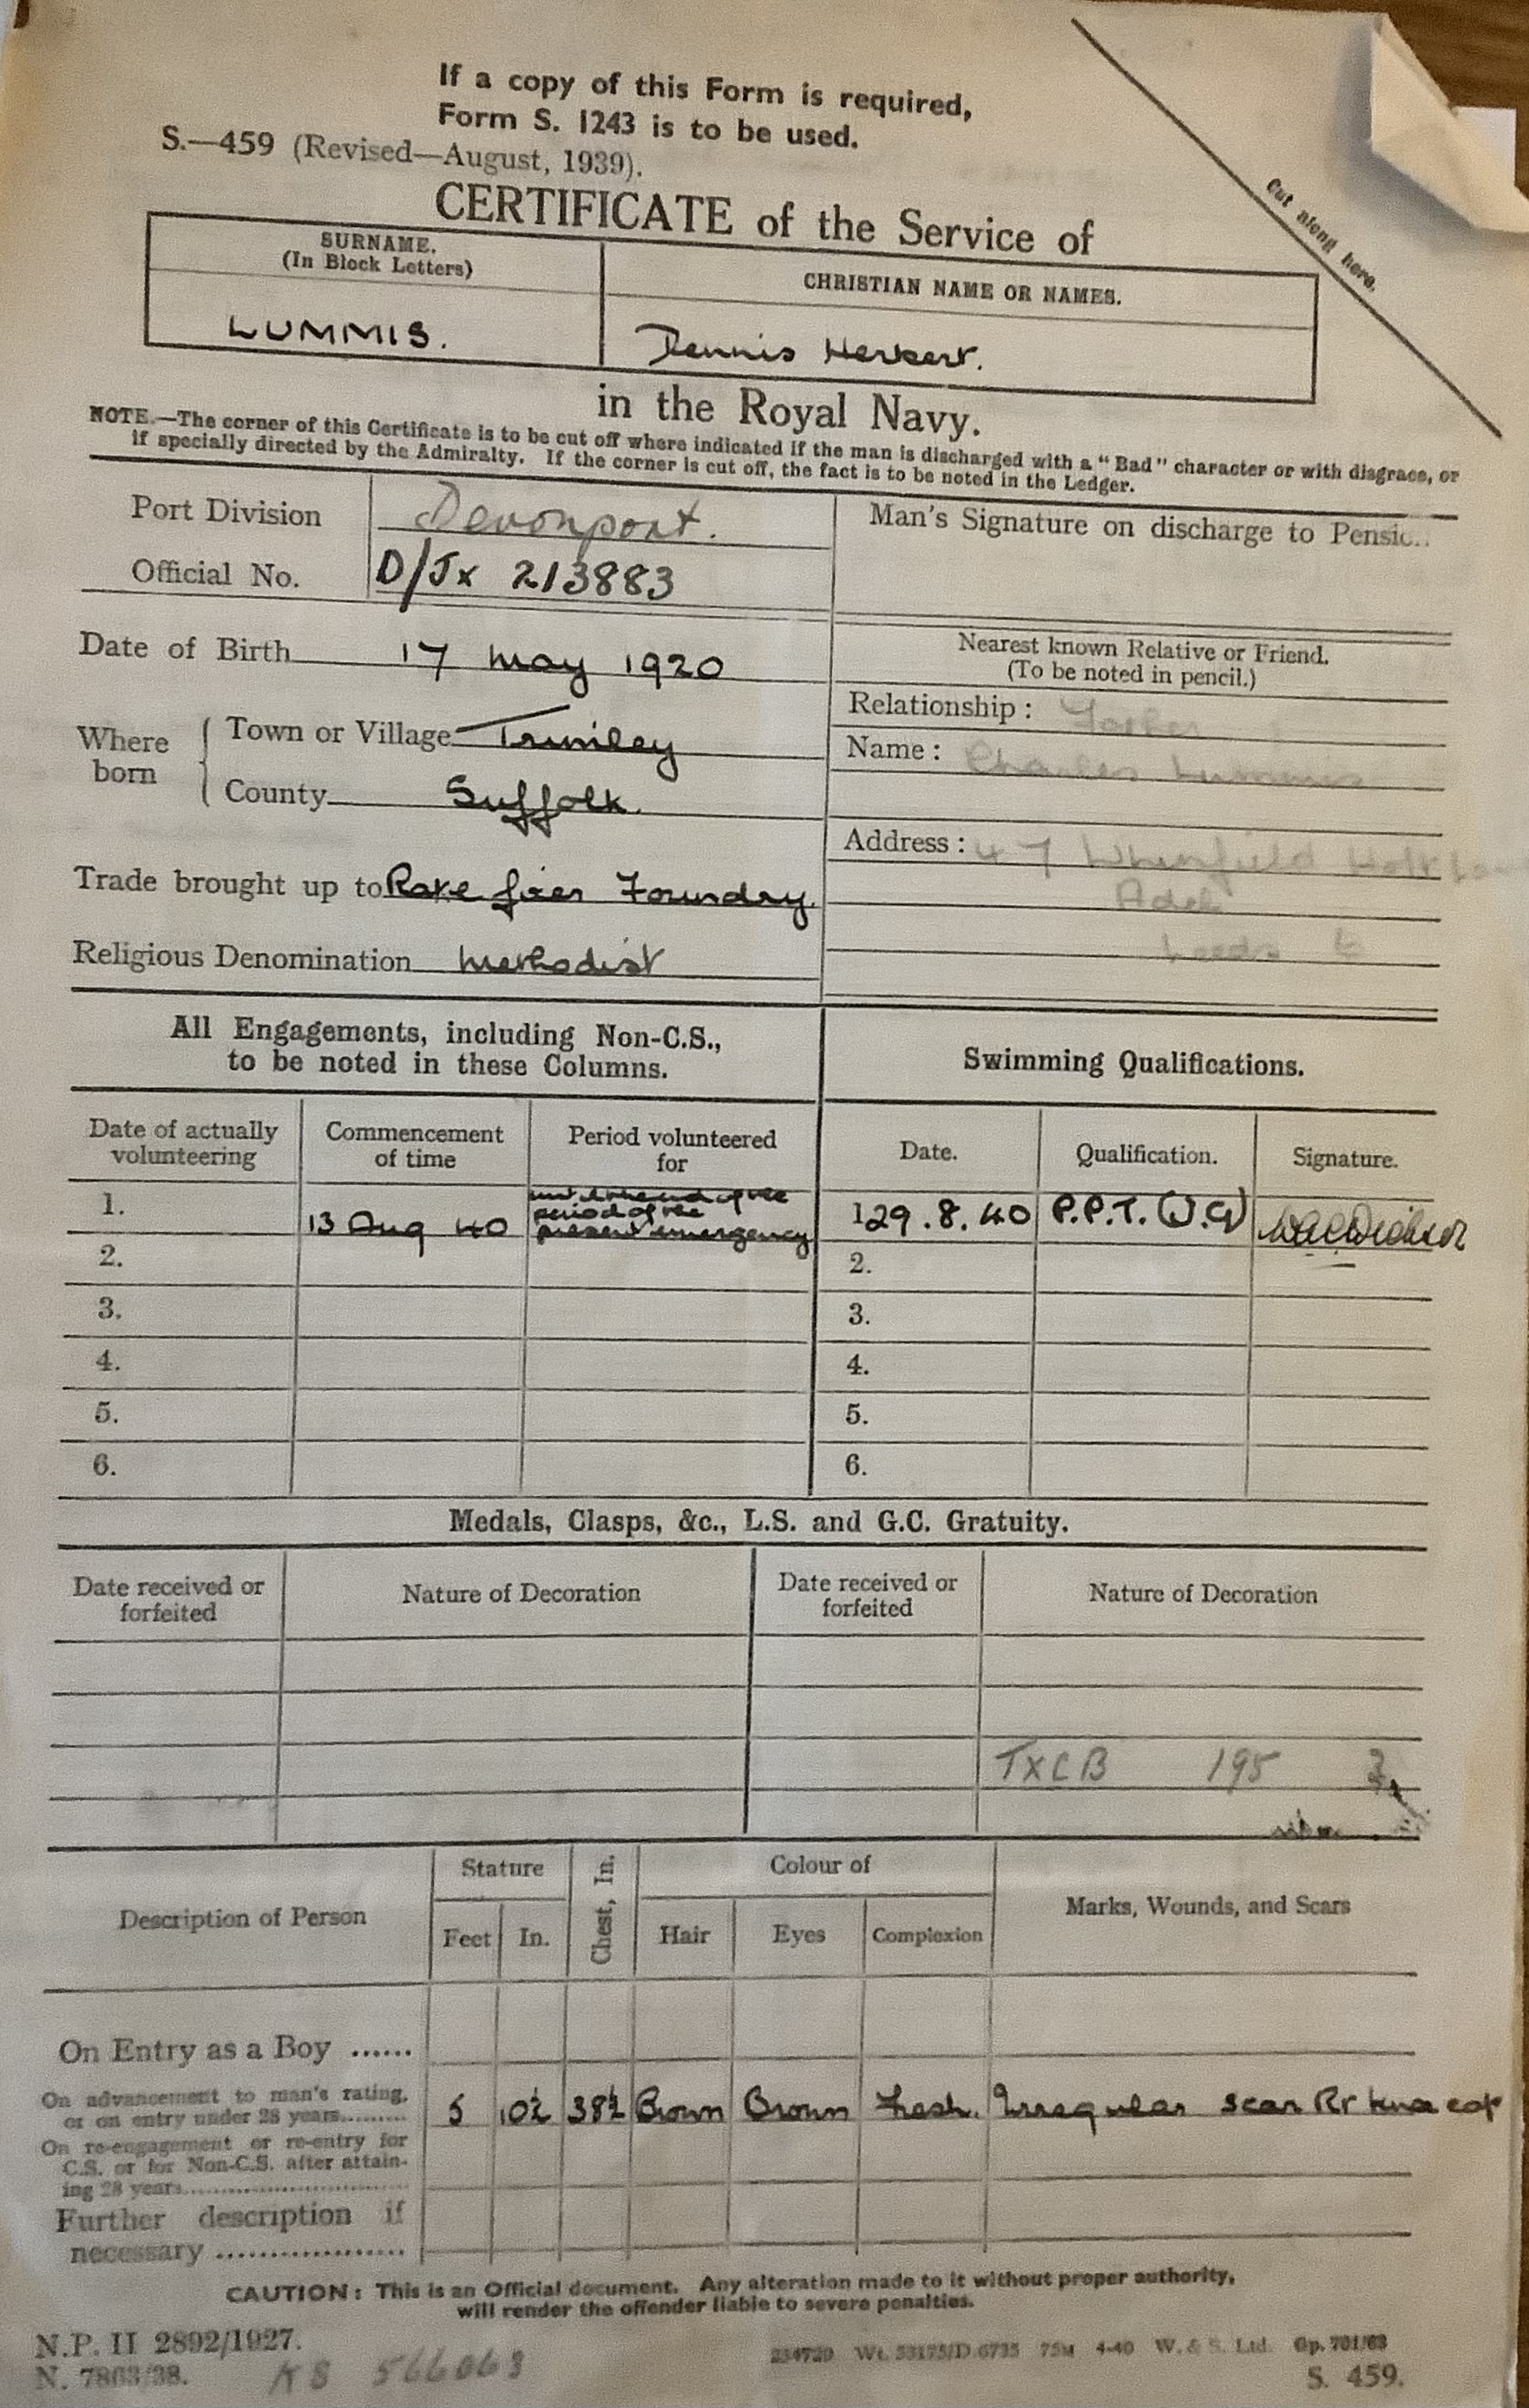 If a copy of this Form is required,
Form S. 1243 is to be used.
S.—459 (Revised—August, 1939).
Cut along here.
CERTIFICATE of the Service of
SURNAME.
(In Block Letters)
CHRISTIAN NAME OR NAMES.
LUMMIS.
Dennis Herbert.
in the Royal Navy.
NOTE.—The corner of this Certificate is to be cut off where indicated if the man is discharged with a "Bad" character or with disgrace, or
if specially directed by the Admiralty. If the corner is cut off, the fact is to be noted in the Ledger.
Port Division Devonport.
Man's Signature on discharge to Pensic..
Official No. D/Jx 213883
Date of Birth 17 May 1920
Nearest known Relative or Friend.
(To be noted in pencil.)
Relationship: Father
Where born
Town or Village Trimley
Name: Charles Lummis
County Suffolk.
Address: 47 Holt
Trade brought up to Foundry.
Adel
Religious Denomination Methodist
Leeds
All Engagements, including Non-C.S.,
to be noted in these Columns.
Swimming Qualifications.
Date of actually volunteering
Commencement of time
Period volunteered for
Date.
Qualification.
Signature.
1. 13 Aug 40 until the end of the
period of the
present emergency
1. 29.8.40 P.P.T.
2. 2.
3. 3.
4. 4.
5. 5.
6. 6.
Medals, Clasps, &c., L.S. and G.C. Gratuity.
Date received or forfeited
Nature of Decoration
Date received or forfeited
Nature of Decoration
TXCB 195
Description of Person
Stature
Feet In.
Chest, In.
Colour of
Hair Eyes Complexion
Marks, Wounds, and Scars
On Entry as a Boy ......
On advancement to man's rating,
or on entry under 28 years.........
5 10½ 38½ Brown Brown Fresh. Irregular scar Rt knee cap
On re-engagement or re-entry for
C.S. or for Non-C.S. after attain-
ing 28 years..............................
Further description if
necessary ...................
CAUTION: This is an Official document. Any alteration made to it without proper authority,
will render the offender liable to severe penalties.
N.P. II 2892/1927.
N. 7803/38.
KS 566063
234720 Wt. 53175/D.6735 75M 4-40 W. & S. Ltd. Gp. 701/63
S. 459.